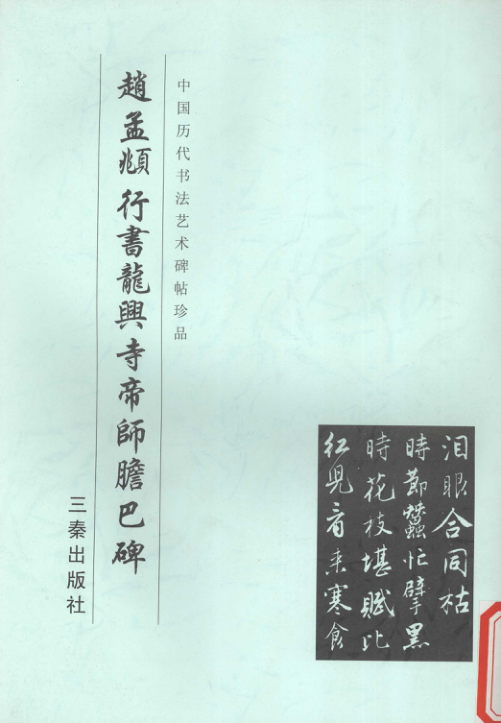 中国历代书法艺术碑帖珍品
趙孟頫行書龍興寺帝師膽巴碑
三秦出版社
泪眼合同枯
時節蠶忙擘黑
時花枝堪賦比
红兒看来寒食